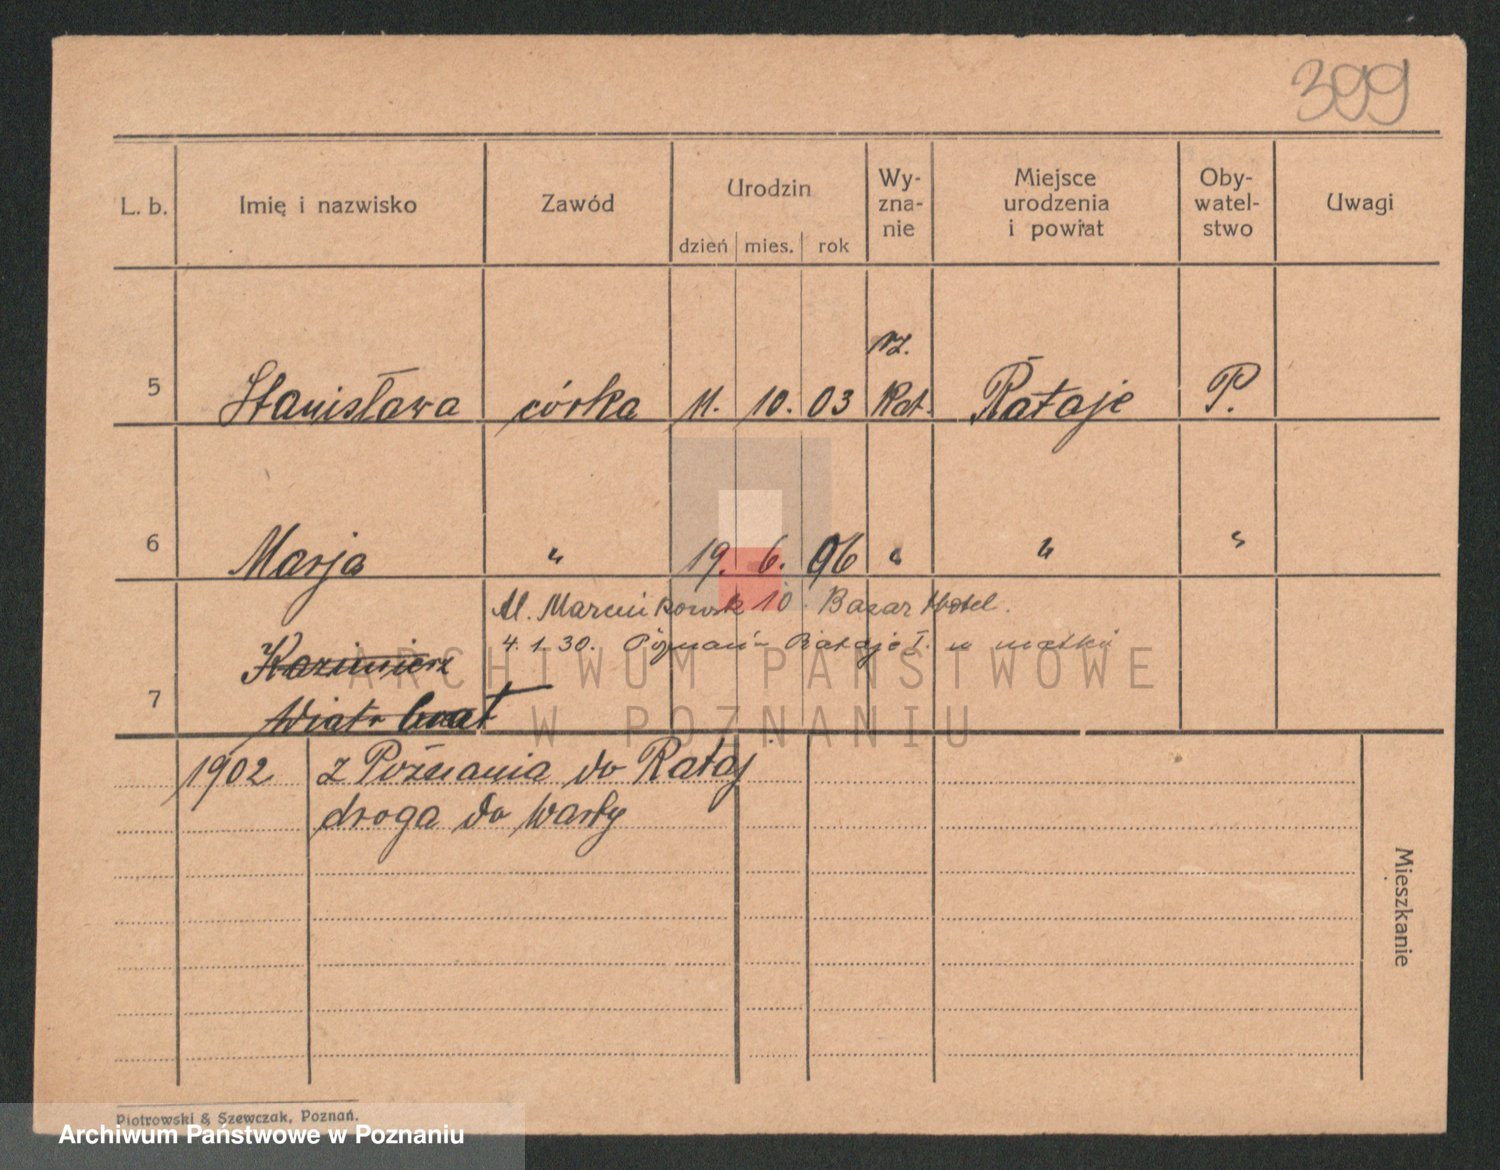 399
L. b. Imię i nazwisko Zawód Urodzin Wy-
zna-
nie Miejsce
urodzenia
i powiat Oby-
watel-
stwo Uwagi
dzień mies. rok
rz.
5 Stanisława córka 11. 10. 03 Kat. Rataje P.
6 Marja " 19. 6. 06 " " "
Al. Marcinkowsk 10. Bazar Hotel.
4.1.30. Poznań- Rataje I. u matki
Kazimierz
7 Wiatr
ARCHIWUM PAŃSTWOWE
W POZNANIU
1902 z Poznania do Rataj
droga do Warty
Mieszkanie
Piotrowski & Szewczak, Poznań.
Archiwum Państwowe w Poznaniu